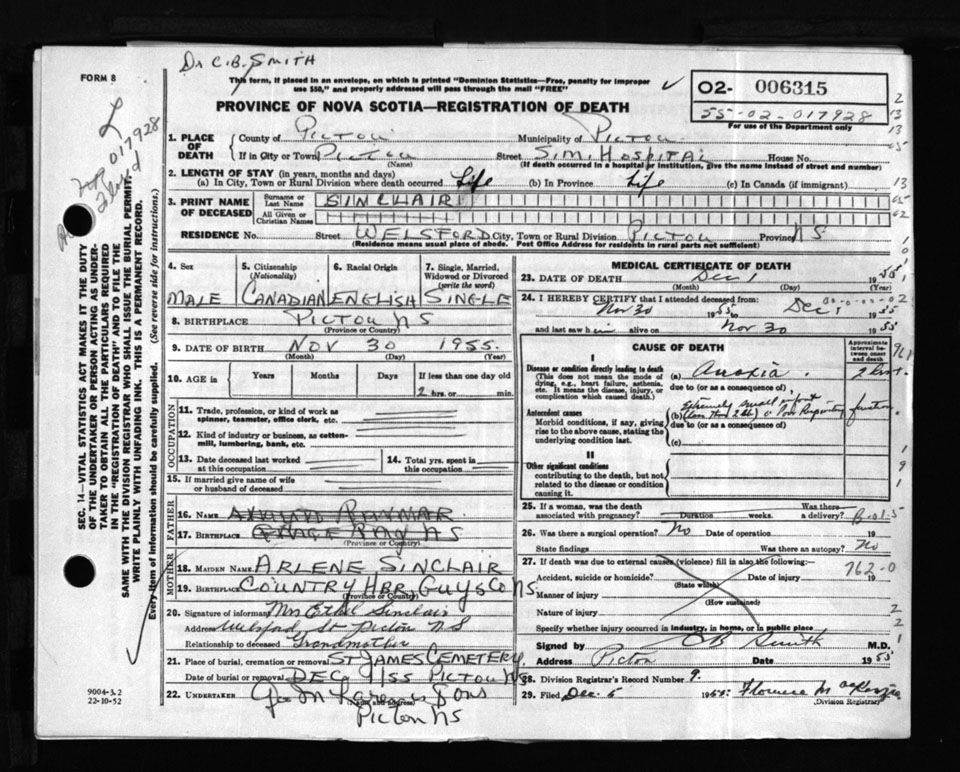 Dr C. B. SMITH
FORM 8
This form, if placed in an envelope, on which is printed "Dominion Statistics—Free, penalty for improper
use $50," and properly addressed will pass through the mail "FREE"
02- 006315
55-02-017928
For use of the Department only
PROVINCE OF NOVA SCOTIA—REGISTRATION OF DEATH
017928
SEC. 14—VITAL STATISTICS ACT MAKES IT THE DUTY
OF THE UNDERTAKER OR PERSON ACTING AS UNDER-
TAKER TO OBTAIN ALL THE PARTICULARS REQUIRED
IN THE "REGISTRATION OF DEATH" AND TO FILE THE
SAME WITH THE DIVISION REGISTRAR WHO SHALL ISSUE THE BURIAL PERMIT.
WRITE PLAINLY WITH UNFADING INK. THIS IS A PERMANENT RECORD.
Every item of information should be carefully supplied. (See reverse side for instructions.)
1. PLACE OF DEATH
County of PICTOU Municipality of PICTOU
If in City or Town PICTOU Street S.M. HOSPITAL House No.
(Name) (If death occurred in a hospital or institution, give the name instead of street and number)
2. LENGTH OF STAY (in years, months and days)
(a) In City, Town or Rural Division where death occurred Life (b) In Province Life (c) In Canada (if immigrant)
3. PRINT NAME OF DECEASED
Surname or Last Name SINCLAIR
All Given or Christian Names
RESIDENCE No. Street WELSFORD City, Town or Rural Division PICTOU Province NS
(Residence means usual place of abode. Post Office Address for residents in rural parts not sufficient)
4. Sex 5. Citizenship (Nationality) 6. Racial Origin 7. Single, Married, Widowed or Divorced (write the word)
MALE CANADIAN ENGLISH SINGLE
8. BIRTHPLACE PICTOU NS
(Province or Country)
9. DATE OF BIRTH NOV 30 1955
(Month) (Day) (Year)
10. AGE in Years Months Days If less than one day
2 hrs. or min.
OCCUPATION
11. Trade, profession, or kind of work as
spinner, teamster, office clerk, etc.
12. Kind of industry or business, as cotton-
mill, lumbering, bank, etc.
13. Date deceased last worked
at this occupation
14. Total yrs. spent in
this occupation
15. If married give name of wife
or husband of deceased
FATHER
16. NAME
17. BIRTHPLACE NS
(Province or Country)
MOTHER
18. MAIDEN NAME ARLENE SINCLAIR
19. BIRTHPLACE COUNTRY HBR GUYSCO NS
(Province or Country)
20. Signature of informant Mrs Ethel Sinclair
Address Welsford St Pictou N S
Relationship to deceased Grandmother
21. Place of burial, cremation or removal ST JAMES CEMETERY
Date of burial or removal DEC 1/55 PICTOU NS
22. UNDERTAKER Sons
(Name and address)
PICTOU NS
9004-3.2
22-10-52
MEDICAL CERTIFICATE OF DEATH
23. DATE OF DEATH Dec 1 1955
(Month) (Day) (Year)
24. I HEREBY CERTIFY that I attended deceased from:
Nov 30 1955 to Dec 1 1955
and last saw him alive on Nov 30 1955
CAUSE OF DEATH
Approximate interval between onset and death
I
Disease or condition directly leading to death
(This does not mean the mode of
dying, e.g., heart failure, asthenia,
etc. It means the disease, injury, or
complication which caused death.)
(a) Anoxia.
due to (or as a consequence of)
Antecedent causes
Morbid conditions, if any, giving
rise to the above cause, stating the
underlying condition last.
Extremely small infant
(b) (less than 2 lb) Poor Respiratory function
due to (or as a consequence of)
(c)
II
Other significant conditions
contributing to the death, but not
related to the disease or condition
causing it.
25. If a woman, was the death
associated with pregnancy? Duration weeks. Was there a delivery? B-01.5
26. Was there a surgical operation? No Date of operation 19
State findings Was there an autopsy? No
27. If death was due to external causes (violence) fill in also the following:— 762-0
Accident, suicide or homicide? Date of injury 19
(State which)
Manner of injury
(How sustained)
Nature of injury
Specify whether injury occurred in industry, in home, or in public place
Signed by CB Smith M.D.
Address Pictou Date 1955
28. Division Registrar's Record Number 9.
29. Filed Dec. 5 1955. Florence MacKenzie
(Division Registrar)